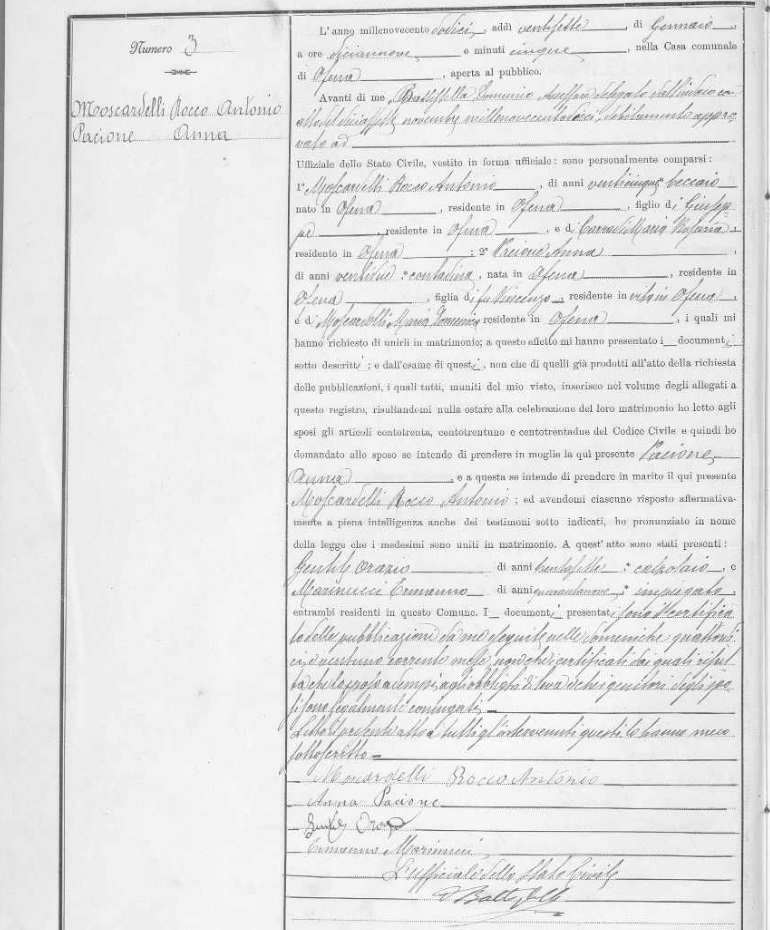 Numero 3
Moscardelli Rocco Antonio
Pacione Anna
L'anno millenovecento dodici, addì ventisette di Gennaio,
a ore diciannove e minuti cinque, nella Casa comunale
di Ofena, aperta al pubblico.
Avanti di me Battistella Domenico Assessore delegato dal Sindaco con
atto del diciassette novembre millenovecentodieci, debitamente appro-
vato ad
Uffiziale dello Stato Civile, vestito in forma ufficiale: sono personalmente comparsi:
1º Moscardelli Rocco Antonio, di anni venticinque beccaio
nato in Ofena, residente in Ofena, figlio di Giusep-
pe, residente in Ofena, e di Maria Rosaria
residente in Ofena; 2º Pacione Anna,
di anni ventidue contadina, nata in Ofena, residente in
Ofena, figlia di fu Vincenzo, residente in vita in Ofena,
e di Moscardelli Maria Domenica residente in Ofena, i quali mi
hanno richiesto di unirli in matrimonio; a questo effetto mi hanno presentato i documenti
sotto descritti; e dall'esame di questi, non che di quelli già prodotti all'atto della richiesta
delle pubblicazioni, i quali tutti, muniti del mio visto, inserisco nel volume degli allegati a
questo registro, risultandomi nulla ostare alla celebrazione del loro matrimonio ho letto agli
sposi gli articoli centotrenta, centotrentuno e centotrentadue del Codice Civile e quindi ho
domandato allo sposo se intende di prendere in moglie la quì presente Pacione
Anna, e a questa se intende di prendere in marito il quì presente
Moscardelli Rocco Antonio: ed avendomi ciascuno risposto affermativa-
mente a piena intelligenza anche dei testimoni sotto indicati, ho pronunziato in nome
della legge che i medesimi sono uniti in matrimonio. A quest'atto sono stati presenti:
Gentile Orazio di anni trentasette calzolaio, e
Marinucci Ermanno di anni quarantanove impiegato,
entrambi residenti in questo Comune. I documenti presentati sono il certifica-
to delle pubblicazioni da me seguite nelle domeniche quattordi-
ci, e ventuno corrente mese, non che i certificati dai quali risul-
ta che lo sposo adempì agli obblighi di leva e che i genitori degli spo-
si sono legalmente coniugati.
Letto il presente atto a tutti gl'intervenuti questi lo hanno meco
sottoscritto
Moscardelli Rocco Antonio
Anna Pacione
Gentile Orazio
Ermanno Marinucci
L'uffiziale dello Stato Civile